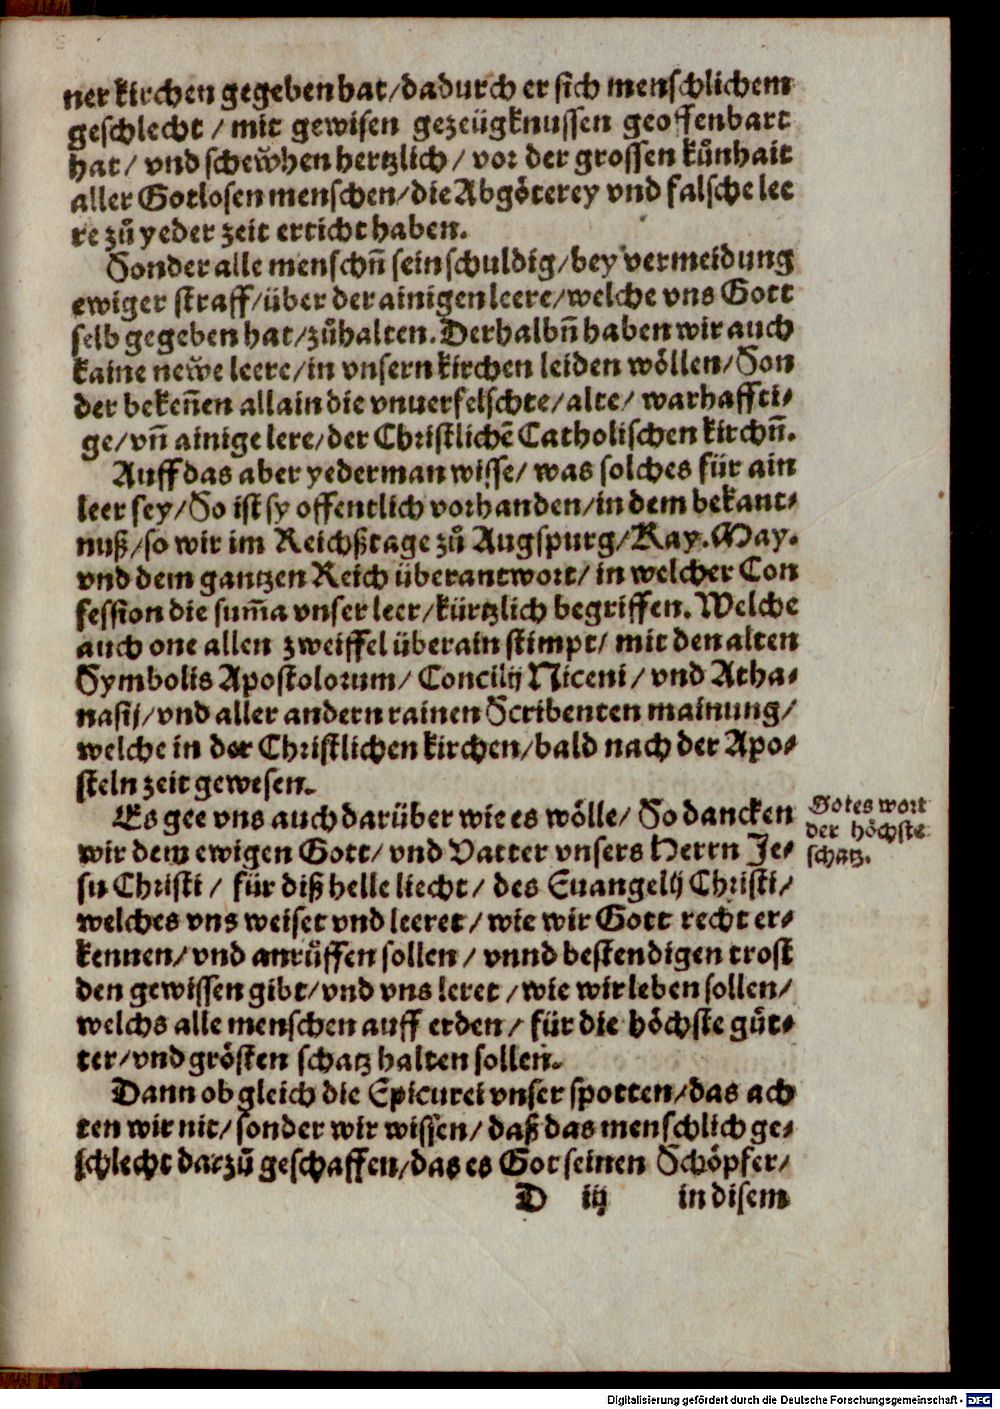 ner kirchen gegeben hat/dadurch er sich menschlichem
geschlecht / mit gewisen gezeügknussen geoffenbart
hat/ vnd schewͤhen hertzlich/ vor der grossen kuͤnhait
aller Gotlosen menschen/die Abgöterey vnd falsche lee
re zuͦ yeder zeit erticht haben.
Sonder alle menschn̄ sein schuldig/bey vermeidung
ewiger straff/über der ainigen leere/welche vns Gott
selb gegeben hat/zuͦhalten. Derhalbn̄ haben wir auch
kaine newͤe leere/in vnsern kirchen leiden wöllen/Son
der bekeñen allain die vnuerfelschte/alte/ warhaffti⸗
ge/vñ ainige lere/der Christlichẽ Catholischen kirchn̄.
Auff das aber yederman wisse/ was solches für ain
leer sey/So ist sy offentlich vorhanden/in dem bekant⸗
nuß/so wir im Reichßtage zuͦ Augspurg/Kay. May.
vnd dem gantzen Reich überantwort/ in welcher Con
fession die sum̄a vnser leer/kürtzlich begriffen. Welche
auch one allen zweiffel überain stimpt/ mit den alten
Symbolis Apostolorum/ Concilij Niceni/ vnd Atha⸗
nasij/vnd aller andern rainen Scribenten mainung/
welche in der Christlichen kirchen/bald nach der Apo⸗
steln zeit gewesen.
Es gee vns auch darüber wie es wölle/ So dancken
wir dem ewigen Gott/ vnd Vatter vnsers Herrn Je⸗
su Christi / für diß helle liecht/ des Euangelij Christi/
welches vns weiset vnd leeret/ wie wir Gott recht er⸗
kennen/ vnd anruͤffen sollen / vnnd bestendigen trost
den gewissen gibt/vnd vns leret /wie wir leben sollen/
welchs alle menschen auff erden/ für die höchste guͤt⸗
ter/vnd grösten schatz halten sollen.
Gotes wort
der höchste
schatz.
Dann ob gleich die Epicurei vnser spotten/das ach
ten wir nit/ sonder wir wissen/ daß das menschlich ge⸗
schlecht darzuͦ geschaffen/das es Got seinen Schöpfer/
D iij in disem
Digitalisierung gefördert durch die Deutsche Forschungsgemeinschaft - DFG